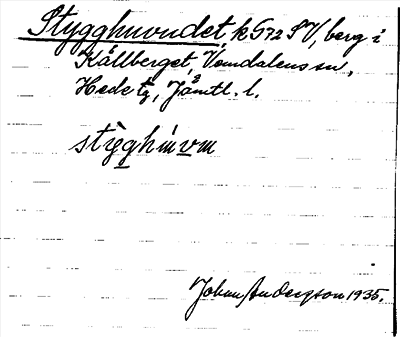 Stygghuvudet k 572 SV, berg i
Kållberget, Vemdalens sn,
Hede tg, Jämtl. l.
stỳgghúvu
Johan Anderson 1935.